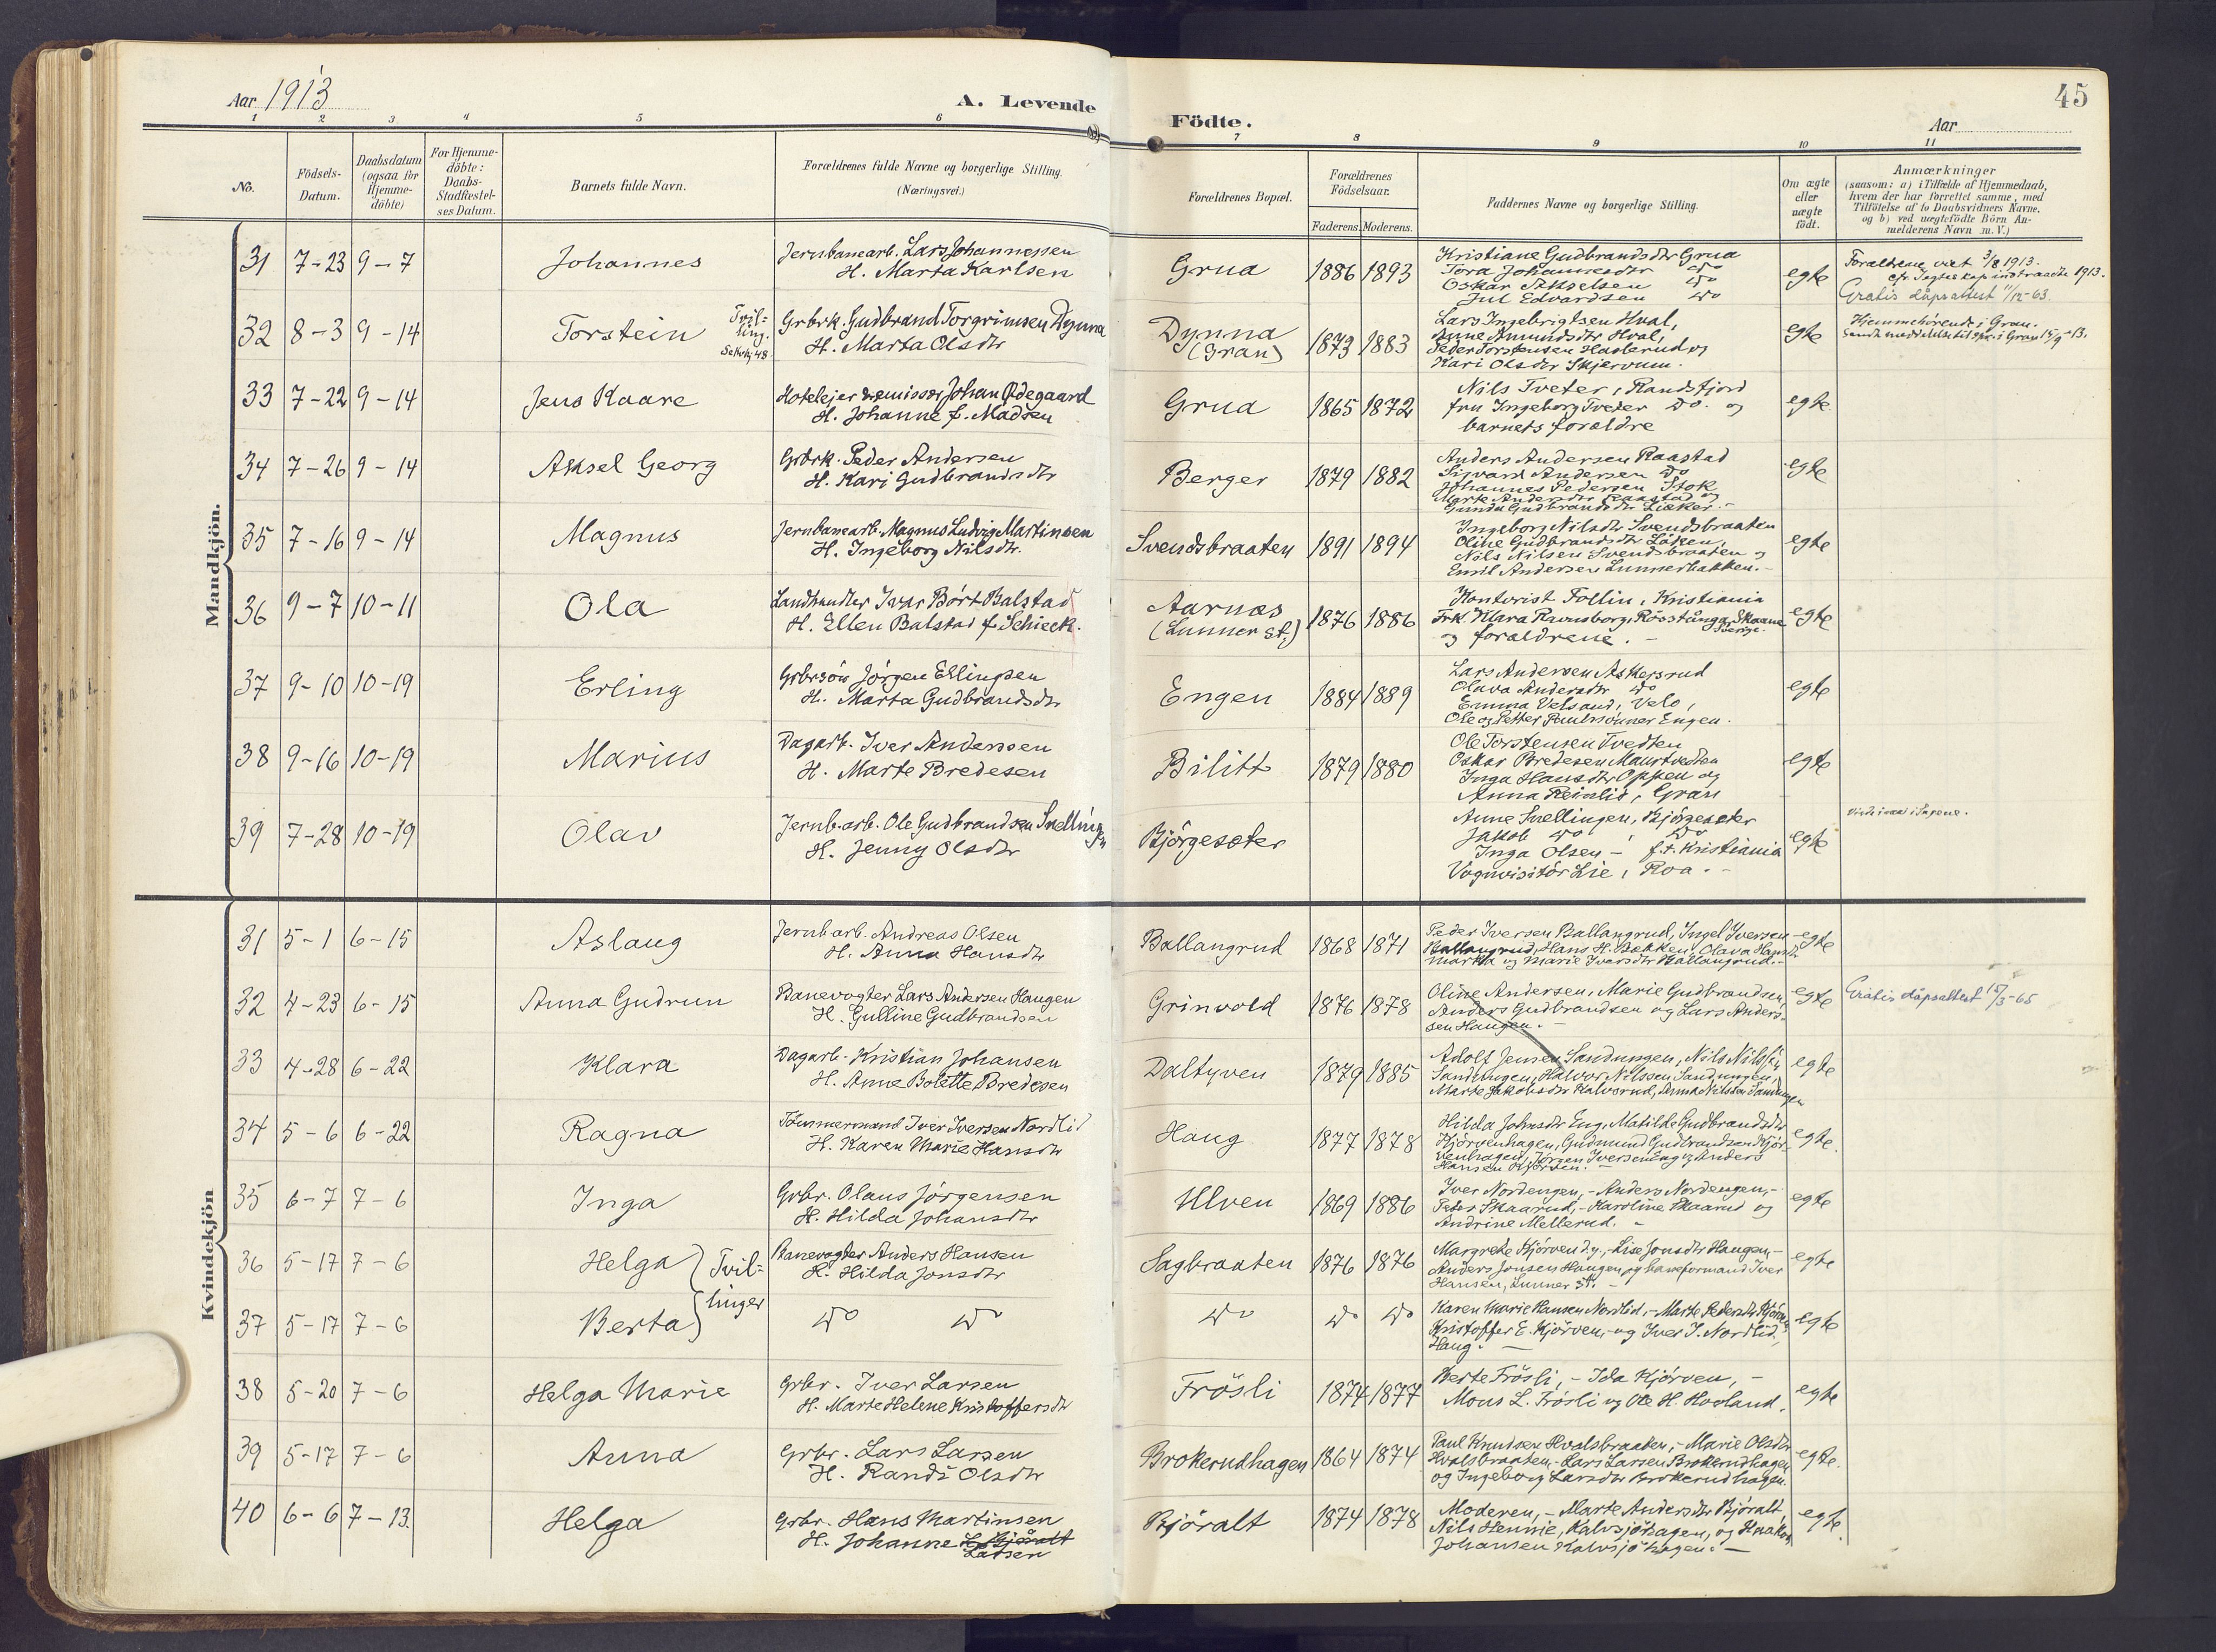 45
Aar 1913
A. Levende
Födte.
Aar
1 2 3 4 5 6 7 8 9 10 11
No.
Födsels-
Datum.
Daabsdatum
(ogsaa for
Hjemme-
döbte)
For Hjemme-
döbte:
Daabs-
Stadfæstel-
ses Datum.
Barnets fulde Navn.
Forældrenes fulde Navne og borgerlige Stilling.
(Næringsvei.)
Forældrenes Bopæl.
Forældrenes
Födselsaar.
Faderens. Moderens.
Faddernes Navne og borgerlige Stilling.
Om ægte
eller
uægte
födt.
Anmærkninger
(saasom: a) i Tilfælde af Hjemmedaab,
hvem der har forrettet samme, med
Tilföielse af to Daabsvidners Navne,
og b) ved uægtefödte Börn An-
melderens Navn m. V.)
Mandkjön.
31 7-23 9-7 Johannes
Jernbanearb. Lars Johannessen
H. Marta Karlsen
Grua 1886 1893
Kristiane Gudbrandsdtr Grua
Tora Johannesdtr do
Oskar Akselsen do
Jul Edvardsen do
egte
Forældrene viet 3/8 1913.
Gratis dåpsattest 11/12-63.
32 8-3 9-14 Torstein
Tvil-
ling.
Grbrk. Gudbrand Torgrimsen Dynna
H. Marta Olsdtr
Dynna
(Gran)
1873 1883
Lars Ingebrigtsen Hval,
Anne Amundsdtr Hval,
Peder Torstensen Haslerud og
Kari Olsdtr Skjervum.
egte
Hjemmehörende i Gran.
33 7-22 9-14 Jens Kaare
Hoteleier Johan Ødegaard
H. Johanne f. Madsen
Grua 1865 1872
Nils Tveter, Randsfjord
fru Ingeborg Tveter do. og
barnets forældre
egte
34 7-26 9-14 Aksel Georg
Grbrk. Peder Andersen
H. Kari Gudbrandsdtr
Berger 1879 1882
Anders Andersen Raastad
Sigvard Andersen do
Johannes Pedersen Stok
Marte Andersdtr Raastad og
Gunda Gudbrandsdtr Lieker.
egte
35 7-16 9-14 Magnus
Jernbanearb. Magnus Ludvig Martinsen
H. Ingeborg Nilsdtr.
Svendsbraaten 1891 1894
Ingeborg Nilsdtr Svendsbraaten
Oline Gudbrandsdtr Löken,
Nils Nilsen Svendsbraaten og
Emil Andersen Lunnerbakken.-
egte
36 9-7 10-11 Ola
Landhandler Ivar Bört Balstad
H. Ellen Balstad f. Schieck.
Aarnæs
(Lunner st.)
1876 1886
Kontorist Follin, Kristiania
Frk. Klara Ravnsborg, Röstånga, Skaane
Sverige
og forældrene.-
egte
37 9-10 10-19 Erling
Grbrsön Jörgen Ellingsen
H. Marta Gudbrandsdtr
Engen 1884 1889
Lars Andersen Askersrud
Olava Andersdtr do
Emma Velsand, Velo,
Ole og Petter Paulssönner Engen.
egte
38 9-16 10-19 Marius
Dagarb. Iver Anderssen
H. Marte Bredesen
Bilitt 1879 1880
Ole Torstensen Tvedten
Oskar Bredesen Maurtvedten
Inga Hansdtr Oppen og
Anna Reinlid, Gran
egte
39 7-28 10-19 Olav
Jernb.arb. Ole Gudbrandsen Snellingen
H. Jenny Olsdtr
Björgesæter
Anne Snellingen, Björgesæter
Jakob do, do
Inga Olsen - f.t. Kristiania
Vognvisitör Lie, Roa.-
egte
Kvindekjön
31 5-1 6-15 Aslaug
Jernb.arb. Andreas Olsen
H. Anna Hansdtr
Ballangrud 1868 1871
Peder Iversen Ballangrud, Ingel Iversen
Ballangrud, Hans H. Bakken, Olava Hansdtr
Marka og Marie Iversdtr Ballangrud.-
egte
32 4-23 6-15 Anna Gudrun
Banevogter Lars Andersen Haugen
H. Gulline Gudbrandsen
Grinvold 1876 1878
Oline Andersen, Marie Gudbrandsen,
Anders Gudbrandsen og Lars Anders-
sen Haugen.-
egte
Gratis dåpsattest 15/3-65
33 4-28 6-22 Klara
Dagarb. Kristian Johansen
H. Anne Bolette Bredesen
Daltyven 1879 1885
Adolf Jensen Sandungen, Nils Nilssen
Sandungen, Halvor Nilssen Sandungen,
Marte Jakobsdtr Kalvsrud, Anna Nilsdtr Sandungen
egte
34 5-6 6-22 Ragna
Tömmermand Iver Iversen Nordlid
H. Karen Marie Hansdtr
Haug 1877 1878
Hilda Johnsdtr Eng, Matilde Gudbrandsdtr
Kjörvenhagen, Gudmund Gudbrandsen Kjör-
venhagen, Jörgen Iversen Eng og Anders
Hansen Kjörven.-
egte.
35 6-7 7-6 Inga
Grbr. Olaus Jörgensen
H. Hilda Johansdtr
Ulven 1869 1886
Iver Nordengen, - Anders Nordengen, -
Peder Skaarud, - Karoline Skaarud og
Andrine Mellerud.-
egte
36 5-17 7-6 Helga
Tvil-
linger
Banevogter Anders Hansen
H. Hilda Jonsdtr
Sagbraaten 1876 1876
Margrete Kjörven d.y., - Lise Jonsdtr Haugen, -
Anders Jonsen Haugen, og baneformand Iver
Hansen, Lunner st. -
egte
37 5-17 7-6 Berta
do do
do do do
Karen Marie Hansen Nordlid, - Marte Pedersdtr Kjörven
Kristoffer E. Kjörven, - og Iver I. Nordlid,
Haug. -
egte
38 5-20 7-6 Helga Marie
Grbr. Iver Larsen
H. Marte Helene Kristoffersdtr
Frösli 1874 1877
Berte Frösli, - Ida Kjörven, -
Mons L. Frösli og Ole H. Hovland.
egte
39 5-17 7-6 Anna
Grbr. Lars Larsen
H. Randi Olsdtr
Brokerudhagen 1864 1874
Paul Knudsen Hvalsbraaten, - Marie Olsdtr
Hvalsbraaten, Lars Larsen Brokerudhagen
og Ingeborg Larsdtr Brokerudhagen.
egte.
40 6-6 7-13. Helga
Grbr. Hans Martinsen
H. Johanne Björalt
Larsen
Björalt 1874 1878
Moderen, - Marte Andersdtr Björalt,
Nils Hennie, Kalvsjöhagen, og Haakon
Johansen Kalvsjöhagen. -
egte.